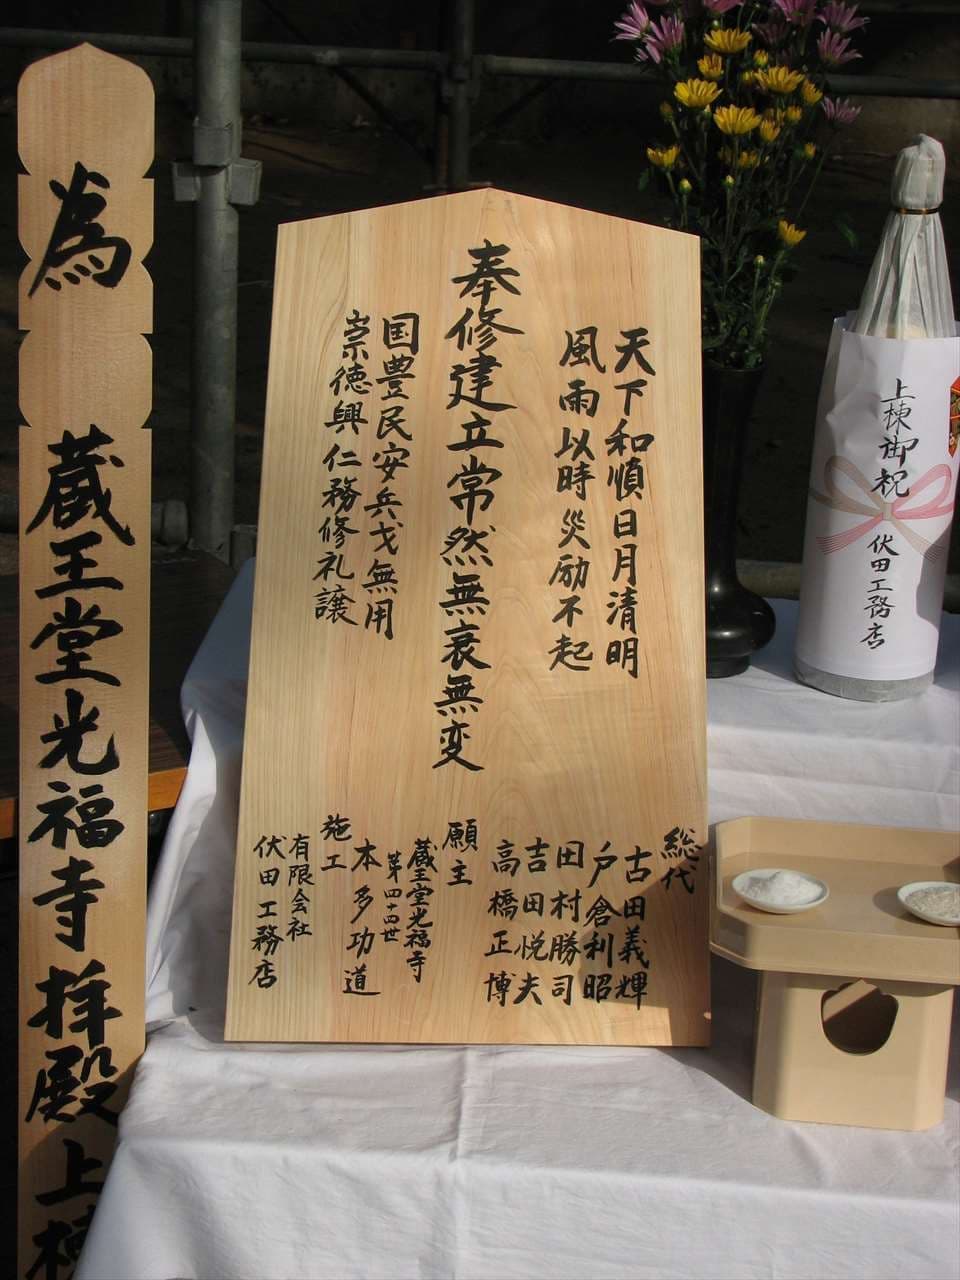 為 蔵王堂光福寺拝殿上棟
天下和順日月清明
風雨以時災励不起
奉修建立常然無衰無変
国豊民安兵戈無用
崇徳興仁務修礼譲
総代
古田義輝
戸倉利昭
田村勝司
吉田悦夫
高橋正博
願主
蔵王堂光福寺
第四十四世
本多功道
施工
有限会社
伏田工務店
上棟御祝
伏田工務店